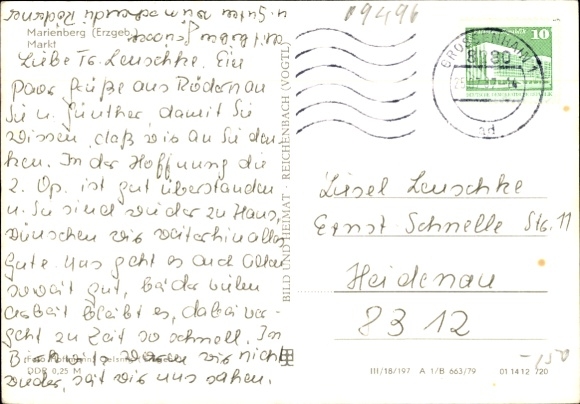 Marienberg (Erzgeb.)
Markt
Liebe Fr. Leuschke. Ein
paar Grüße aus Rödern an
Sie u. Günther, damit Sie
wissen, daß wir an Sie den-
ken. In der Hoffnung die
2. Op. ist gut überstanden
u. Sie sind wieder zu Haus,
wünschen wir weiterhin alles
Gute. Uns geht es auch
soweit gut, bei der vielen
Arbeit bleibt es, dabei ver-
geht die Zeit so schnell. In
waren wir nicht
wieder, seit wir uns sahen.
u. Guten
mit lieben Grüßen
09496
10
DEUTSCHE DEMOKRATISCHE REPUBLIK
GROSSENHAIN 1
8280
ad
BILD UND HEIMAT · REICHENBACH (VOGTL)
Liesel Leuschke
Ernst-Schnelle Str. 11
Heidenau
8312
-,50
DDR 0,25 M
III/18/197 A 1/B 663/79 01 14 12 720